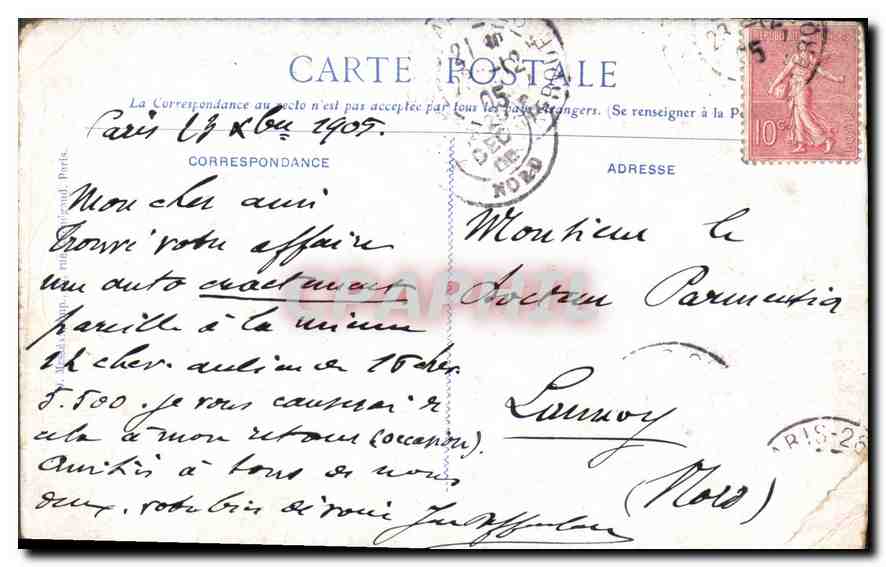 CARTE POSTALE
La Correspondance au recto n'est pas acceptée par tous les pays étrangers. (Se renseigner à la Po
Paris 23 Xbre 1905.
CORRESPONDANCE
Mon cher ami
Trouvé votre affaire
une auto exactement
pareille à la mienne
12 chev. au lieu de 16 chev.
5.500. je vous causerai de
cela à mon retour (occasion).
Amitiés à tous de nous
deux. votre bien dévoué
ADRESSE
Monsieur le
Docteur Parmentier
Lannoy
(Nord)
REPUBLIQUE
10
21
12
05
NORD
23
12
5
PARIS-26
Paris.
CPAPHIL